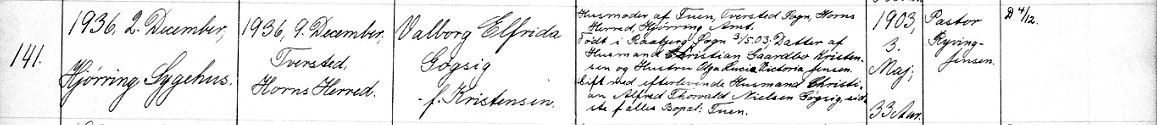 141.
1936, 2. December,
Hjørring Sygehus.
1936, 9. December,
Tversted,
Horns Herred.
Valborg Elfrida
Gøgsig
f. Kristensen.
Husmoder af Tuen, Tversted Sogn, Horns
Herred, Hjørring Amt.
Født i Raabjerg Sogn 3/5.03. Datter af
Husmand Christian Gaardbo Kristen-
sen og Hustru Olga Lucie Victoria Jensen.
Gift med efterlevende Husmand Christi-
an Alfred Thorvald Nielsen Gøgsig, sid-
ste fælles Bopæl: Tuen.
1903,
3.
Maj,
33 Aar.
Pastor
Ryving-
Jensen.
D 4/12.